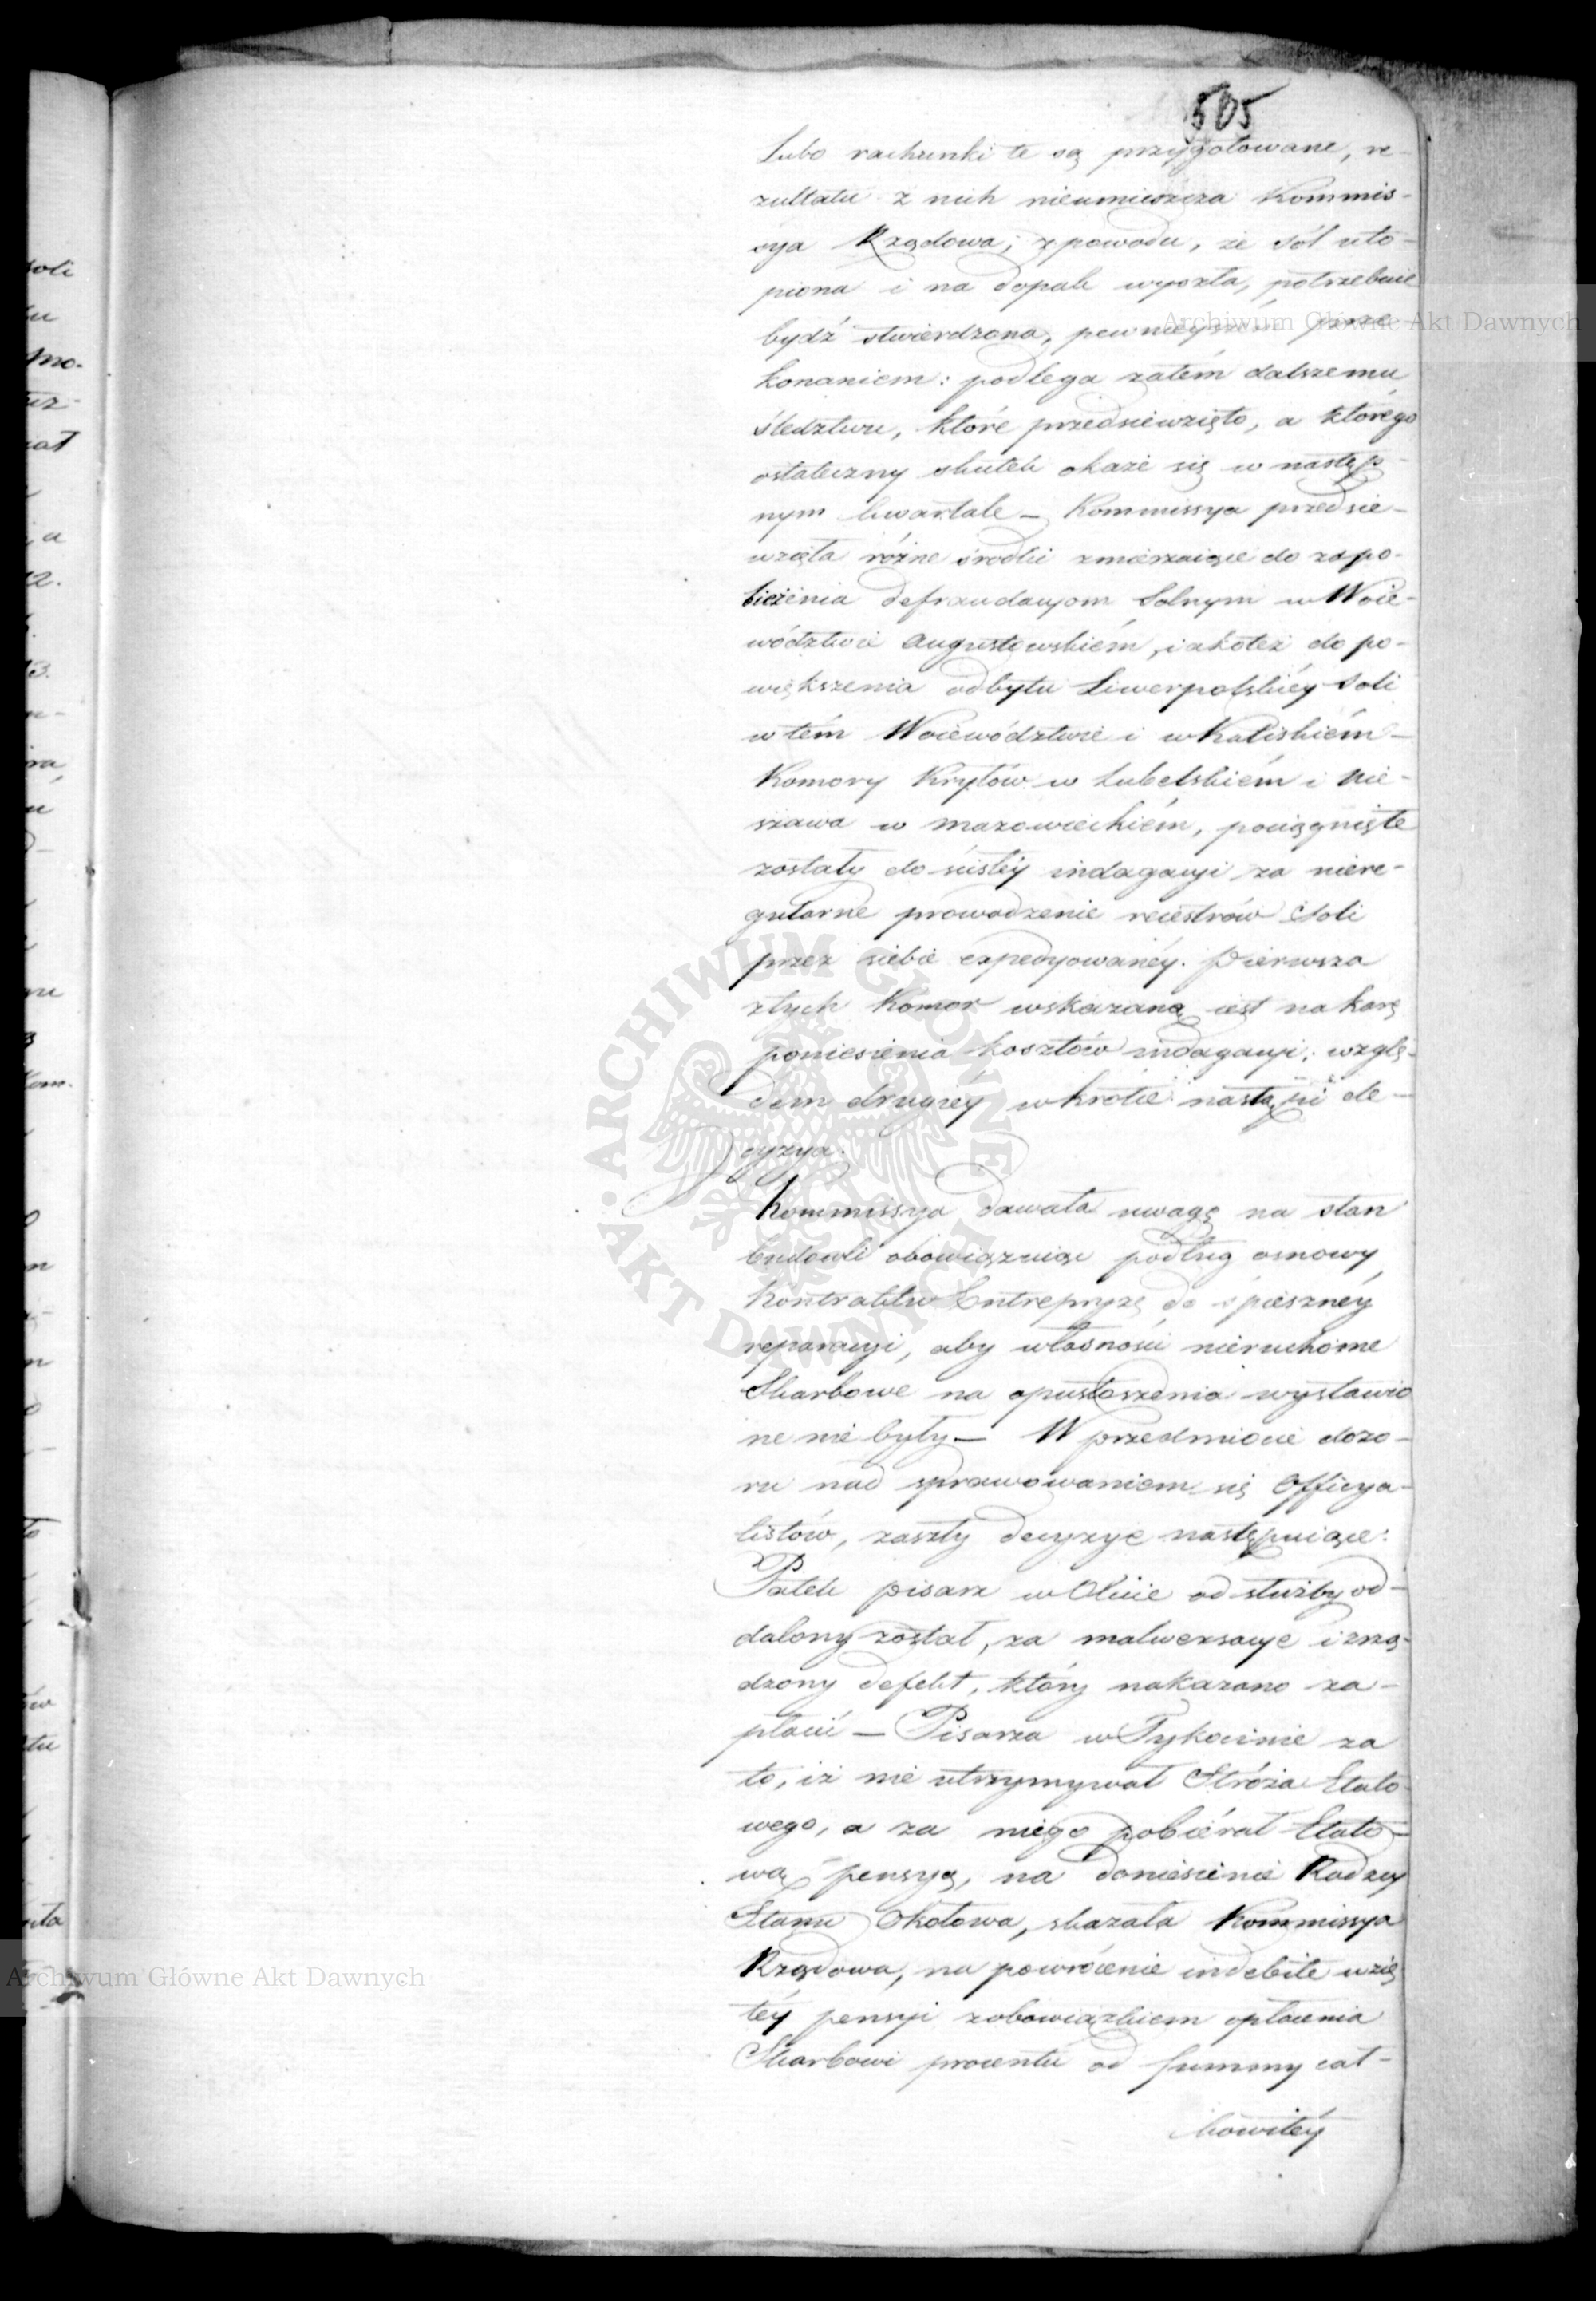 505
Lubo rachunki te są przygotowane, re-
zultatu z nich nieumieszcza Kommis-
sya Rządowa; z powodu, że Sól uto-
piona i na dopale wyszła, potrzebuie
bydź stwierdzona, pewnieyszém prze-
konaniem: podlega zatém dalszemu
śledztwu, które przedsiewzięto, a którego
ostateczny skutek okaże się w następ-
nym kwartale – Kommissya przedsie-
wzięła różne środki zmierzaiące do zapo-
bieżenia defraudacyom Solnym w Woie-
wództwie Augustowskiém, iakoteż do po-
większenia odbytu Liwerpolskiéy Soli
w tém Woiewództwie i w Kaliskiém –
Komory Kryłów w Lubelskiém i Nie-
szawa w Mazowieckiém, pociągnięte
zostały do ścisłéy indagacyi za niere-
gularne prowadzenie reiestrów Soli
przez siebie expedyowanéy. Pierwsza
z tych Komor wskazaną iest na karę
poniesienia kosztów indagacyi; wzglę-
dem drugiéy wkrótce nastąpi de-
cyzya.
Kommissya dawała uwagę na stan
budowli obowiązuiąc podług osnowy
Kontraktu Entrepryzę do śpiesznéy
reparacyi, aby własności nieruchome
Skarbowe na opustoszenia wystawio
ne nie były – W przedmiocie dozo-
ru nad sprawowaniem się Officya-
listów, zaszły decyzye następuiące:
Patek pisarz w Oliie od służby od-
dalony został, za malwersacye i zrzą-
dzony defekt, który nakazano za-
płacić – Pisarza w Tykocinie za
to, iż nie utrzymywał Stróża Etato-
wego, a za niego pobiérał Etato-
wą pensyą, na doniesienie Radzcy
Stanu Okołowa, skazała Kommissya
Rządowa, na powrócenie indebite wzię
téy pensyi z obowiązkiem opłacenia
Skarbowi procentu od summy cał-
kowitéy
Archiwum Główne Akt Dawnych
Archiwum Główne Akt Dawnych
ARCHIWUM GŁÓWNE AKT DAWNYCH